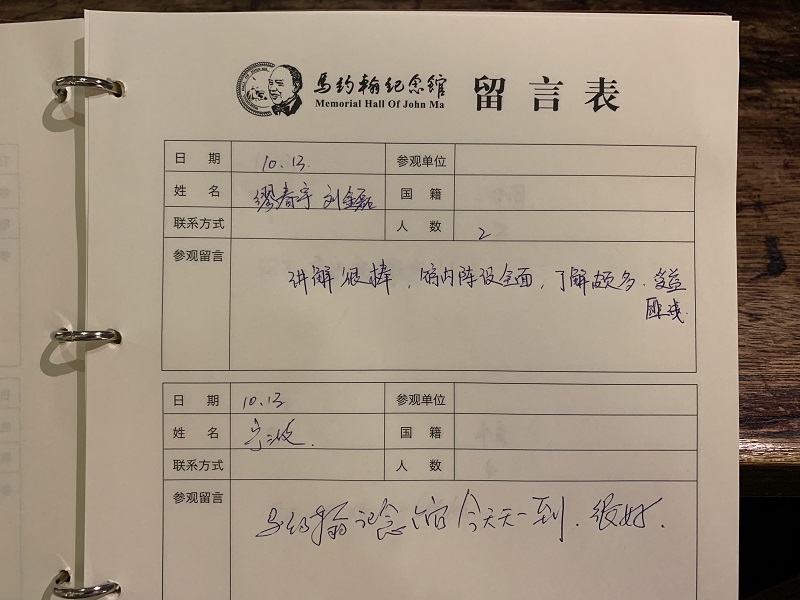 马约翰纪念馆 留言表
Memorial Hall Of John Ma
日 期 10.13. 参观单位
姓 名 缪春宇 刘金磊 国 籍
联系方式 人 数 2
参观留言 讲解很棒，馆内陈设全面，了解颇多.受益
匪浅.
日 期 10.13 参观单位
姓 名 国 籍
联系方式 人 数
参观留言 马约翰记念馆今天一到.很好.